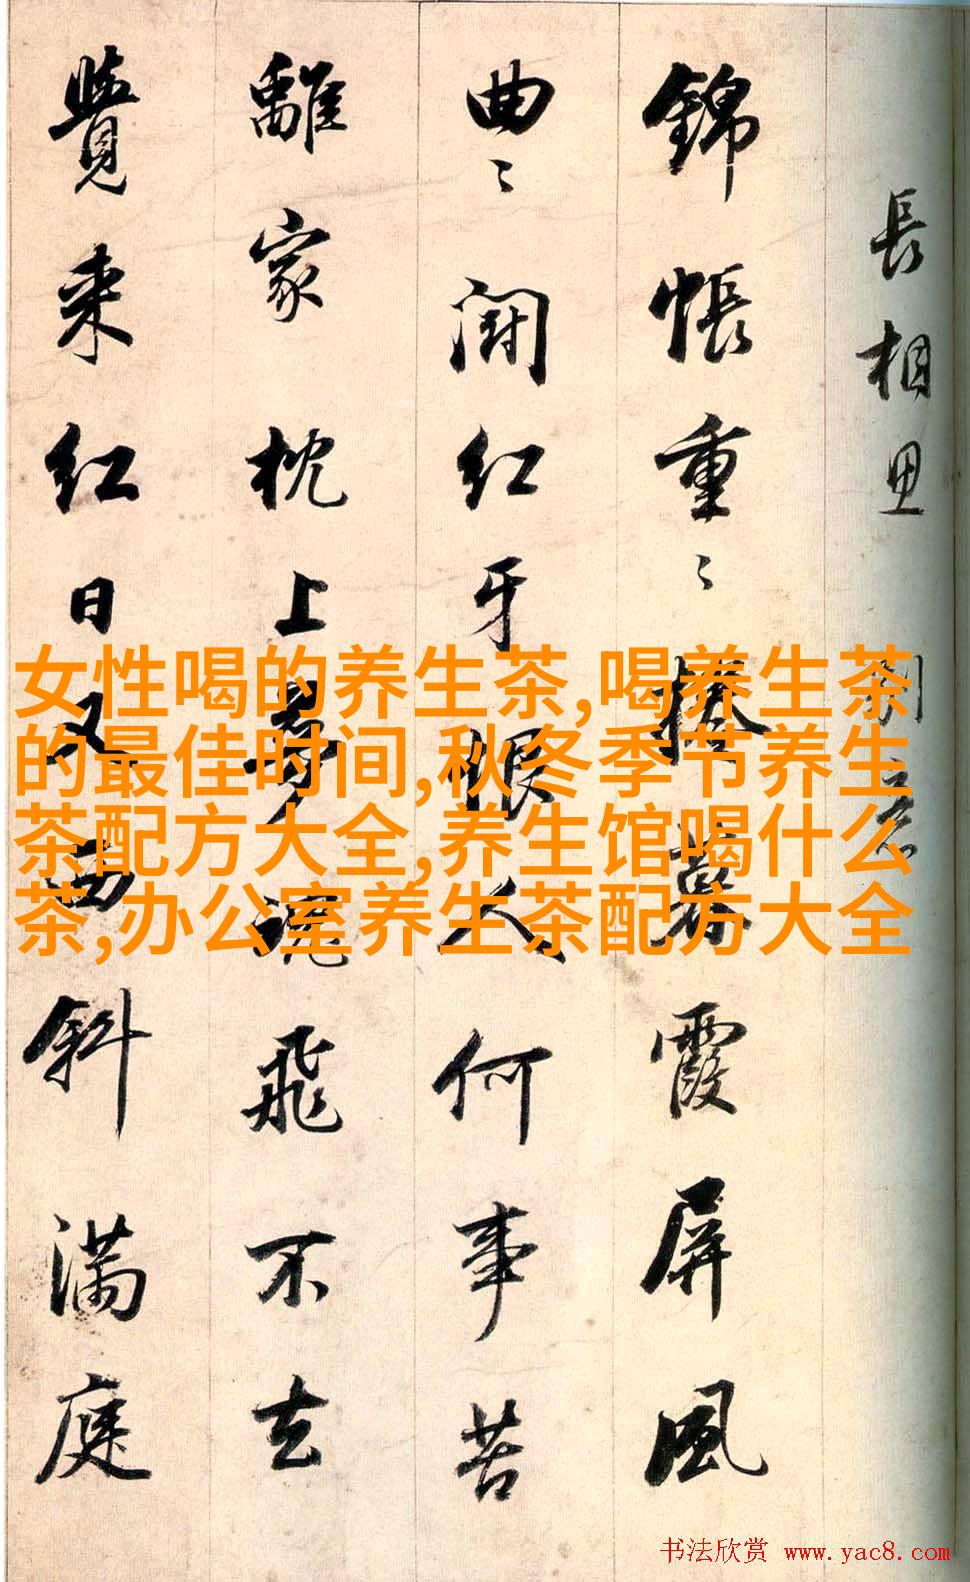 長相思 別意
錦帳重〻捲暮霞屏風
曲〻鬬紅牙恨人何事苦
離家枕上夢魂飛不去
覺來紅日又西斜滿庭
女性喝的养生茶,喝养生茶
的最佳时间,秋冬季节养生
茶配方大全,养生馆喝什么
茶,办公室养生茶配方大全
书法欣赏 www.yac8.com